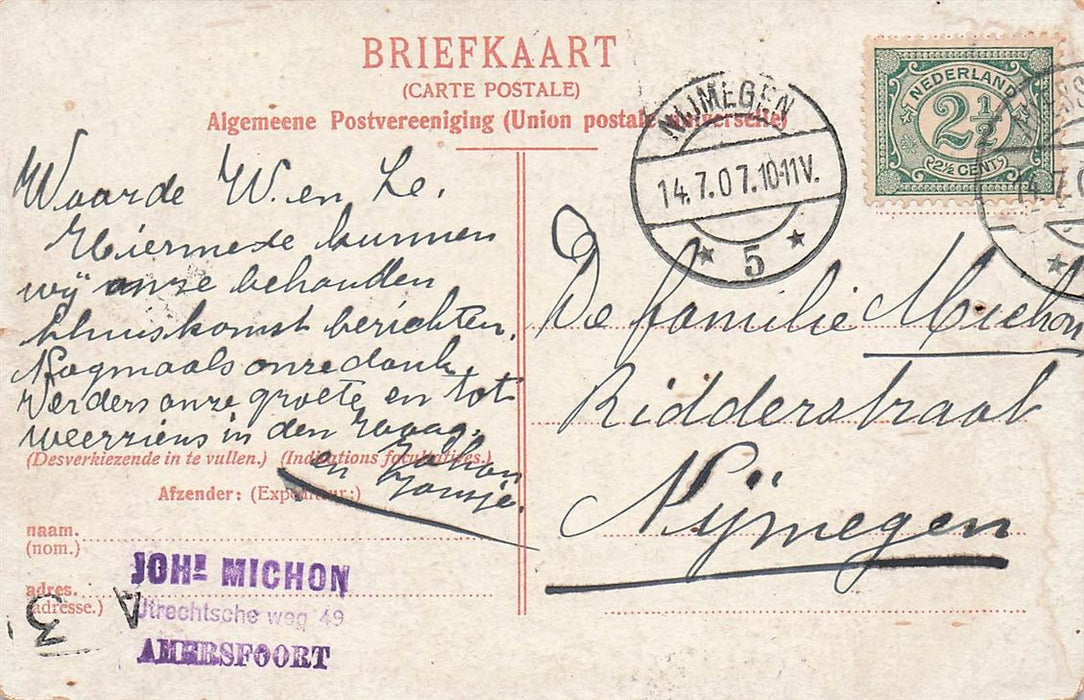 BRIEFKAART
(CARTE POSTALE)
Algemeene Postvereeniging (Union postale universelle)
NEDERLAND
2½
2½ CENT
NIJMEGEN
14.7.07.10-11V.
5
14.7.0
Waarde W. en Le.
Hiermede kunnen
wij onze behouden
thuiskomst berichten.
Nogmaals onze dank
Verders onze groete en tot
weerziens in den
en Johan
Jansje.
De familie Michon
Ridderstraat
Nijmegen
(Desverkiezende in te vullen.) (Indications facultatives.)
Afzender: (Expéditeur:)
naam.
(nom.)
adres.
(adresse.)
JOHS MICHON
Utrechtsche weg 49
AMERSFOORT
3
A